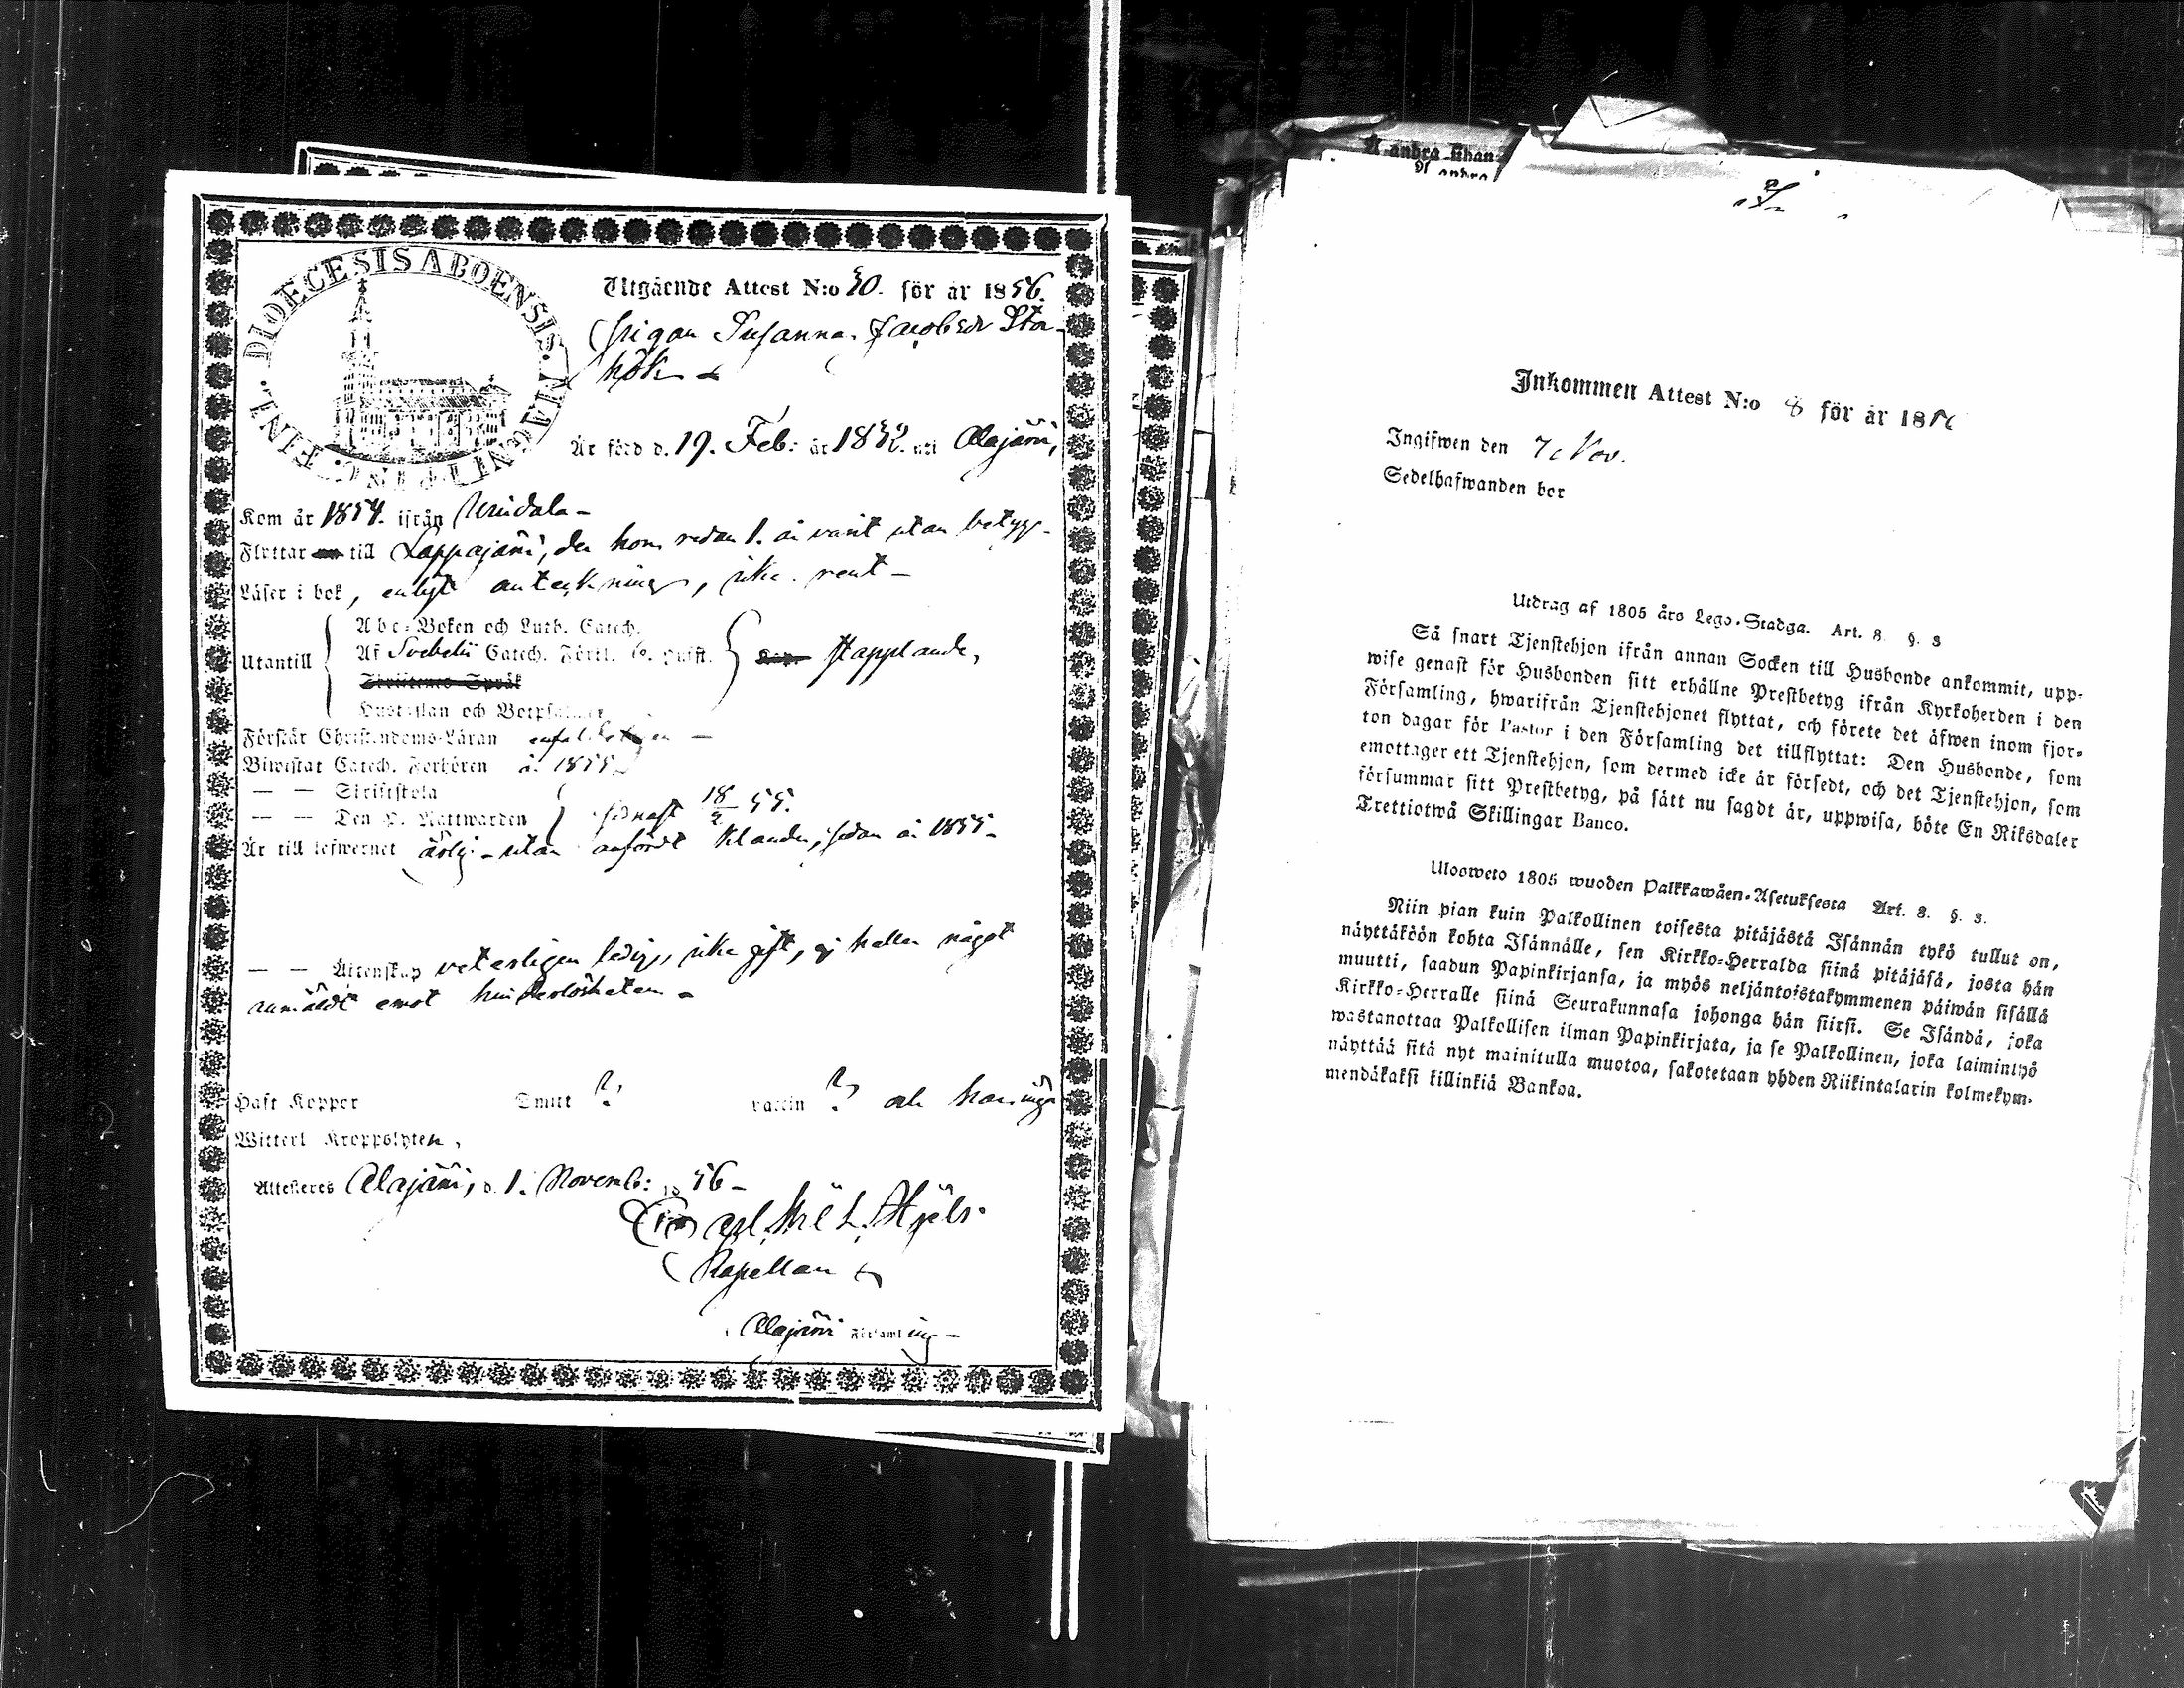 DIOECESIS ABOENSIS. MAGNI PRINC. FINL.
Utgående Attest N:o 30. för år 1856.
Pigan Susanna Jacobsdr Sto-
hök
Är född d. 19. Feb: år 1832. uti Alajärvi,
Kom år 1854. ifrån Vindala -
Flyttar till Lappajärvi, der hon redan 1. år varit utan betyg -
Läser i bok, enligt anteckning, icke rent -
Utantill
Abc-Boken och Luth. Catech.
Af Svebelii Catech. Förkl. 6. Quæst.
stapplande,
Hustaflan och Botpsalmer
Förstår Christendoms-Läran enfaldeligen -
Biwistat Catech. Förhören år 1855
— — Skriftskola
— — Den H. Nattwarden sednast 18/2 55.
Är till lefwernet ärlig - utan anfördt klander, sedan år 1855 -
— — Ägtenskap veterligen ledig, icke gift, ej heller något
anmäldt emot hinderlösheten -
Haft Koppor Smitt ? vaccin ? och har inga
Witterl. Kroppslyten,
Attesteras Alajärvi, d. 1. Novemb: 1856 -
Kapellan
i Alajärvi Församling -
A andra sidan
A andra
Inkommen Attest N:o 8 för år 1856
Ingifwen den 7 Nov.
Sedelhafwanden bor
Utdrag af 1805 års Lego-Stadga. Art. 8. §. 3
Så snart Tjenstehjon ifrån annan Socken till Husbonde ankommit, upp-
wise genast för Husbonden sitt erhållne Prestbetyg ifrån Kyrkoherden i den
Församling, hwarifrån Tjenstehjonet flyttat, och förete det äfwen inom fjor-
ton dagar för Pastor i den Församling det tillflyttat: Den Husbonde, som
emottager ett Tjenstehjon, som dermed icke är försedt, och det Tjenstehjon, som
försummar sitt Prestbetyg, på sätt nu sagdt är, uppwisa, böte En Riksdaler
Trettiotwå Skillingar Banco.
Ulosweto 1805 wuoden Palkkawäen-Asetuksesta Art. 8. §. 3.
Niin pian kuin Palkollinen toisesta pitäjästä Isännän tykö tullut on,
näyttäköön kohta Isännälle, sen Kirkko-Herralda siinä pitäjäsä, josta hän
muutti, saadun Papinkirjansa, ja myös neljäntoistakymmenen päiwän sisällä
Kirkko-Herralle siinä Seurakunnasa johonga hän siirsi. Se Isändä, joka
wastanottaa Palkollisen ilman Papinkirjata, ja se Palkollinen, joka laimintyö
näyttää sitä nyt mainitulla muotoa, sakotetaan yhden Riikintalarin kolmekym-
mendäkaksi killinkiä Bankoa.